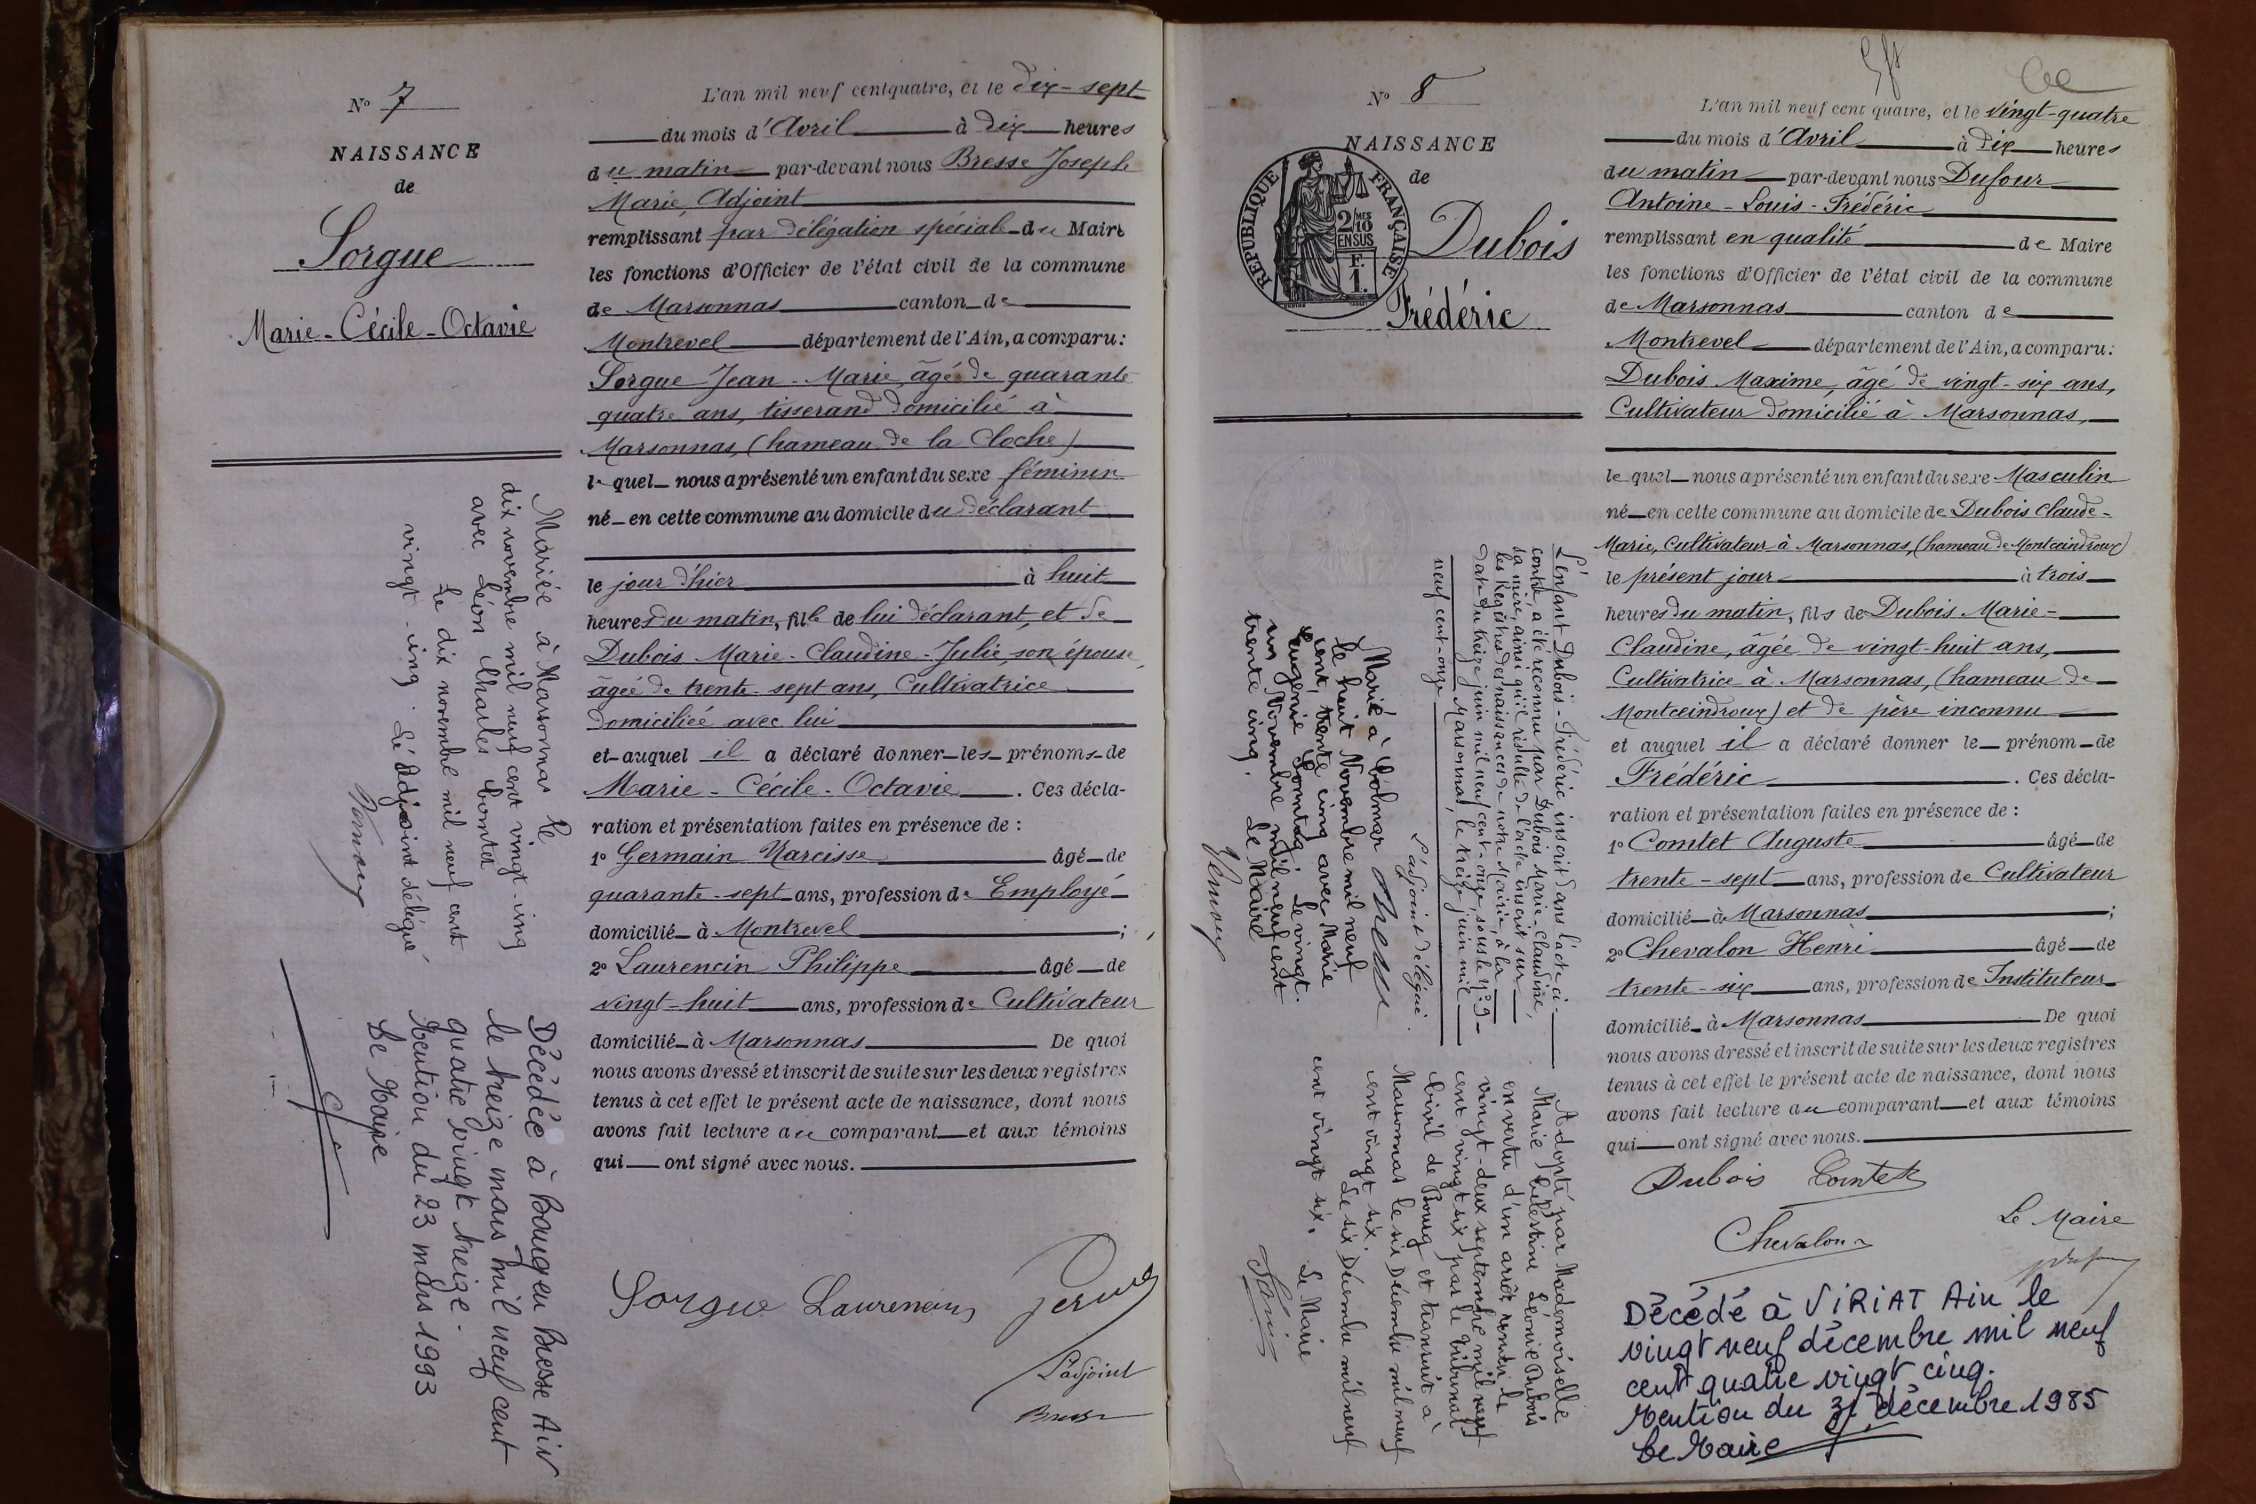 N° 7
NAISSANCE
de
Sorgue
Marie-Cécile-Octavie
L'an mil neuf cent quatre, et le dix-sept
du mois d'Avril à dix heures
du matin par-devant nous Bresse Joseph
Marie, Adjoint
remplissant par délégation spéciale du Maire
les fonctions d'Officier de l'état civil de la commune
de Marsonnas canton de
Montrevel département de l'Ain, a comparu:
Sorgue Jean-Marie, âgé de quarante
quatre ans, tisserand domicilié à
Marsonnas, (hameau de la Cloche)
le quel nous a présenté un enfant du sexe féminin
né en cette commune au domicile du déclarant
le jour d'hier à huit
heures du matin, fille de lui déclarant, et de
Dubois Marie-Claudine-Julie, son épouse,
âgée de trente-sept ans, Cultivatrice
domiciliée avec lui
et auquel il a déclaré donner les prénoms de
Marie-Cécile-Octavie. Ces décla-
ration et présentation faites en présence de:
1° Germain Narcisse âgé de
quarante-sept ans, profession de Employé
domicilié à Montrevel;
2° Laurencin Philippe âgé de
vingt-huit ans, profession de Cultivateur
domicilié à Marsonnas De quoi
nous avons dressé et inscrit de suite sur les deux registres
tenus à cet effet le présent acte de naissance, dont nous
avons fait lecture au comparant et aux témoins
qui ont signé avec nous.
Sorgue Laurencin
L'adjoint
Bresse
Mariée à Marsonnas le
dix novembre mil neuf cent vingt-cinq
avec Léon Charles Comtet
Le dix novembre mil neuf cent
vingt-cinq. L'Adjoint délégué
Décédée à Bangeu Bresse Ain
le treize mars mil neuf cent
quatre vingt treize.
Mention du 23 mars 1993
Le Maire
N° 8
NAISSANCE
de
Dubois
Frédéric
RÉPUBLIQUE FRANÇAISE
2/10 MES
EN SUS
F.
1.
L'an mil neuf cent quatre, et le vingt-quatre
du mois d'Avril à dix heures
du matin par-devant nous Dufour
Antoine-Louis-Frédéric
remplissant en qualité de Maire
les fonctions d'Officier de l'état civil de la commune
de Marsonnas canton de
Montrevel département de l'Ain, a comparu:
Dubois Maxime, âgé de vingt-six ans,
Cultivateur domicilié à Marsonnas,
le quel nous a présenté un enfant du sexe Masculin
né en cette commune au domicile de Dubois Claude-
Marie, Cultivateur à Marsonnas, (hameau de Montceindroux)
le présent jour à trois
heures du matin, fils de Dubois Marie-
Claudine, âgée de vingt-huit ans,
Cultivatrice à Marsonnas, (hameau de
Montceindroux) et de père inconnu
et auquel il a déclaré donner le prénom de
Frédéric. Ces décla-
ration et présentation faites en présence de:
1° Comtet Auguste âgé de
trente-sept ans, profession de Cultivateur
domicilié à Marsonnas;
2° Chevalon Henri âgé de
trente-six ans, profession de Instituteur
domicilié à Marsonnas De quoi
nous avons dressé et inscrit de suite sur les deux registres
tenus à cet effet le présent acte de naissance, dont nous
avons fait lecture au comparant et aux témoins
qui ont signé avec nous.
Dubois Comtet
Chevalon
Le Maire
Décédé à VIRIAT Ain le
vingt neuf décembre mil neuf
cent quatre vingt cinq.
Mention du 31 décembre 1985
Le Maire
L'enfant Dubois-Frédéric inscrit dans l'acte ci-
contre, a été reconnu par Dubois Marie-Claudine,
sa mère, ainsi qu'il résulte de l'acte inscrit sur
les Registres des naissances de notre Mairie, à la
date du treize juin mil neuf cent-onze, sous le n° 9
Marsonnas, le treize juin mil
neuf cent-onze
L'adjoint délégué.
Marié à Colmar
le huit Novembre mil neuf
cent trente cinq avec Marie
Eugénie Sonntag. Le vingt-
un Novembre mil neuf cent
trente cinq. Le Maire
Adopté par Mademoiselle
Marie Célestine Léonie Dubois
en vertu d'un arrêt rendu le
vingt-deux septembre mil neuf
cent vingt six par le Tribunal
Civil de Bourg et transcrit à
Marsonnas le six Décembre mil neuf
cent vingt six.
Le six Décembre mil neuf
cent vingt six. Le Maire